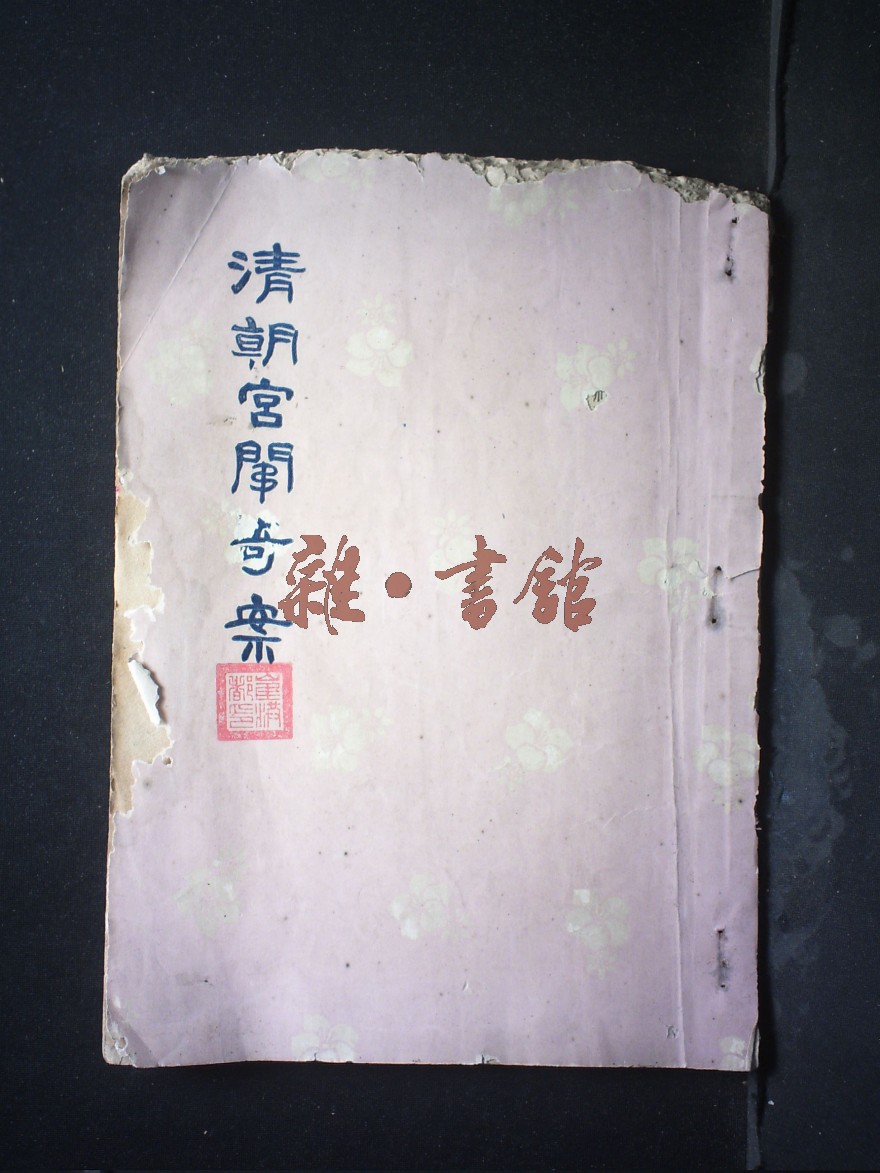 清朝宮闈奇案
雜·書館